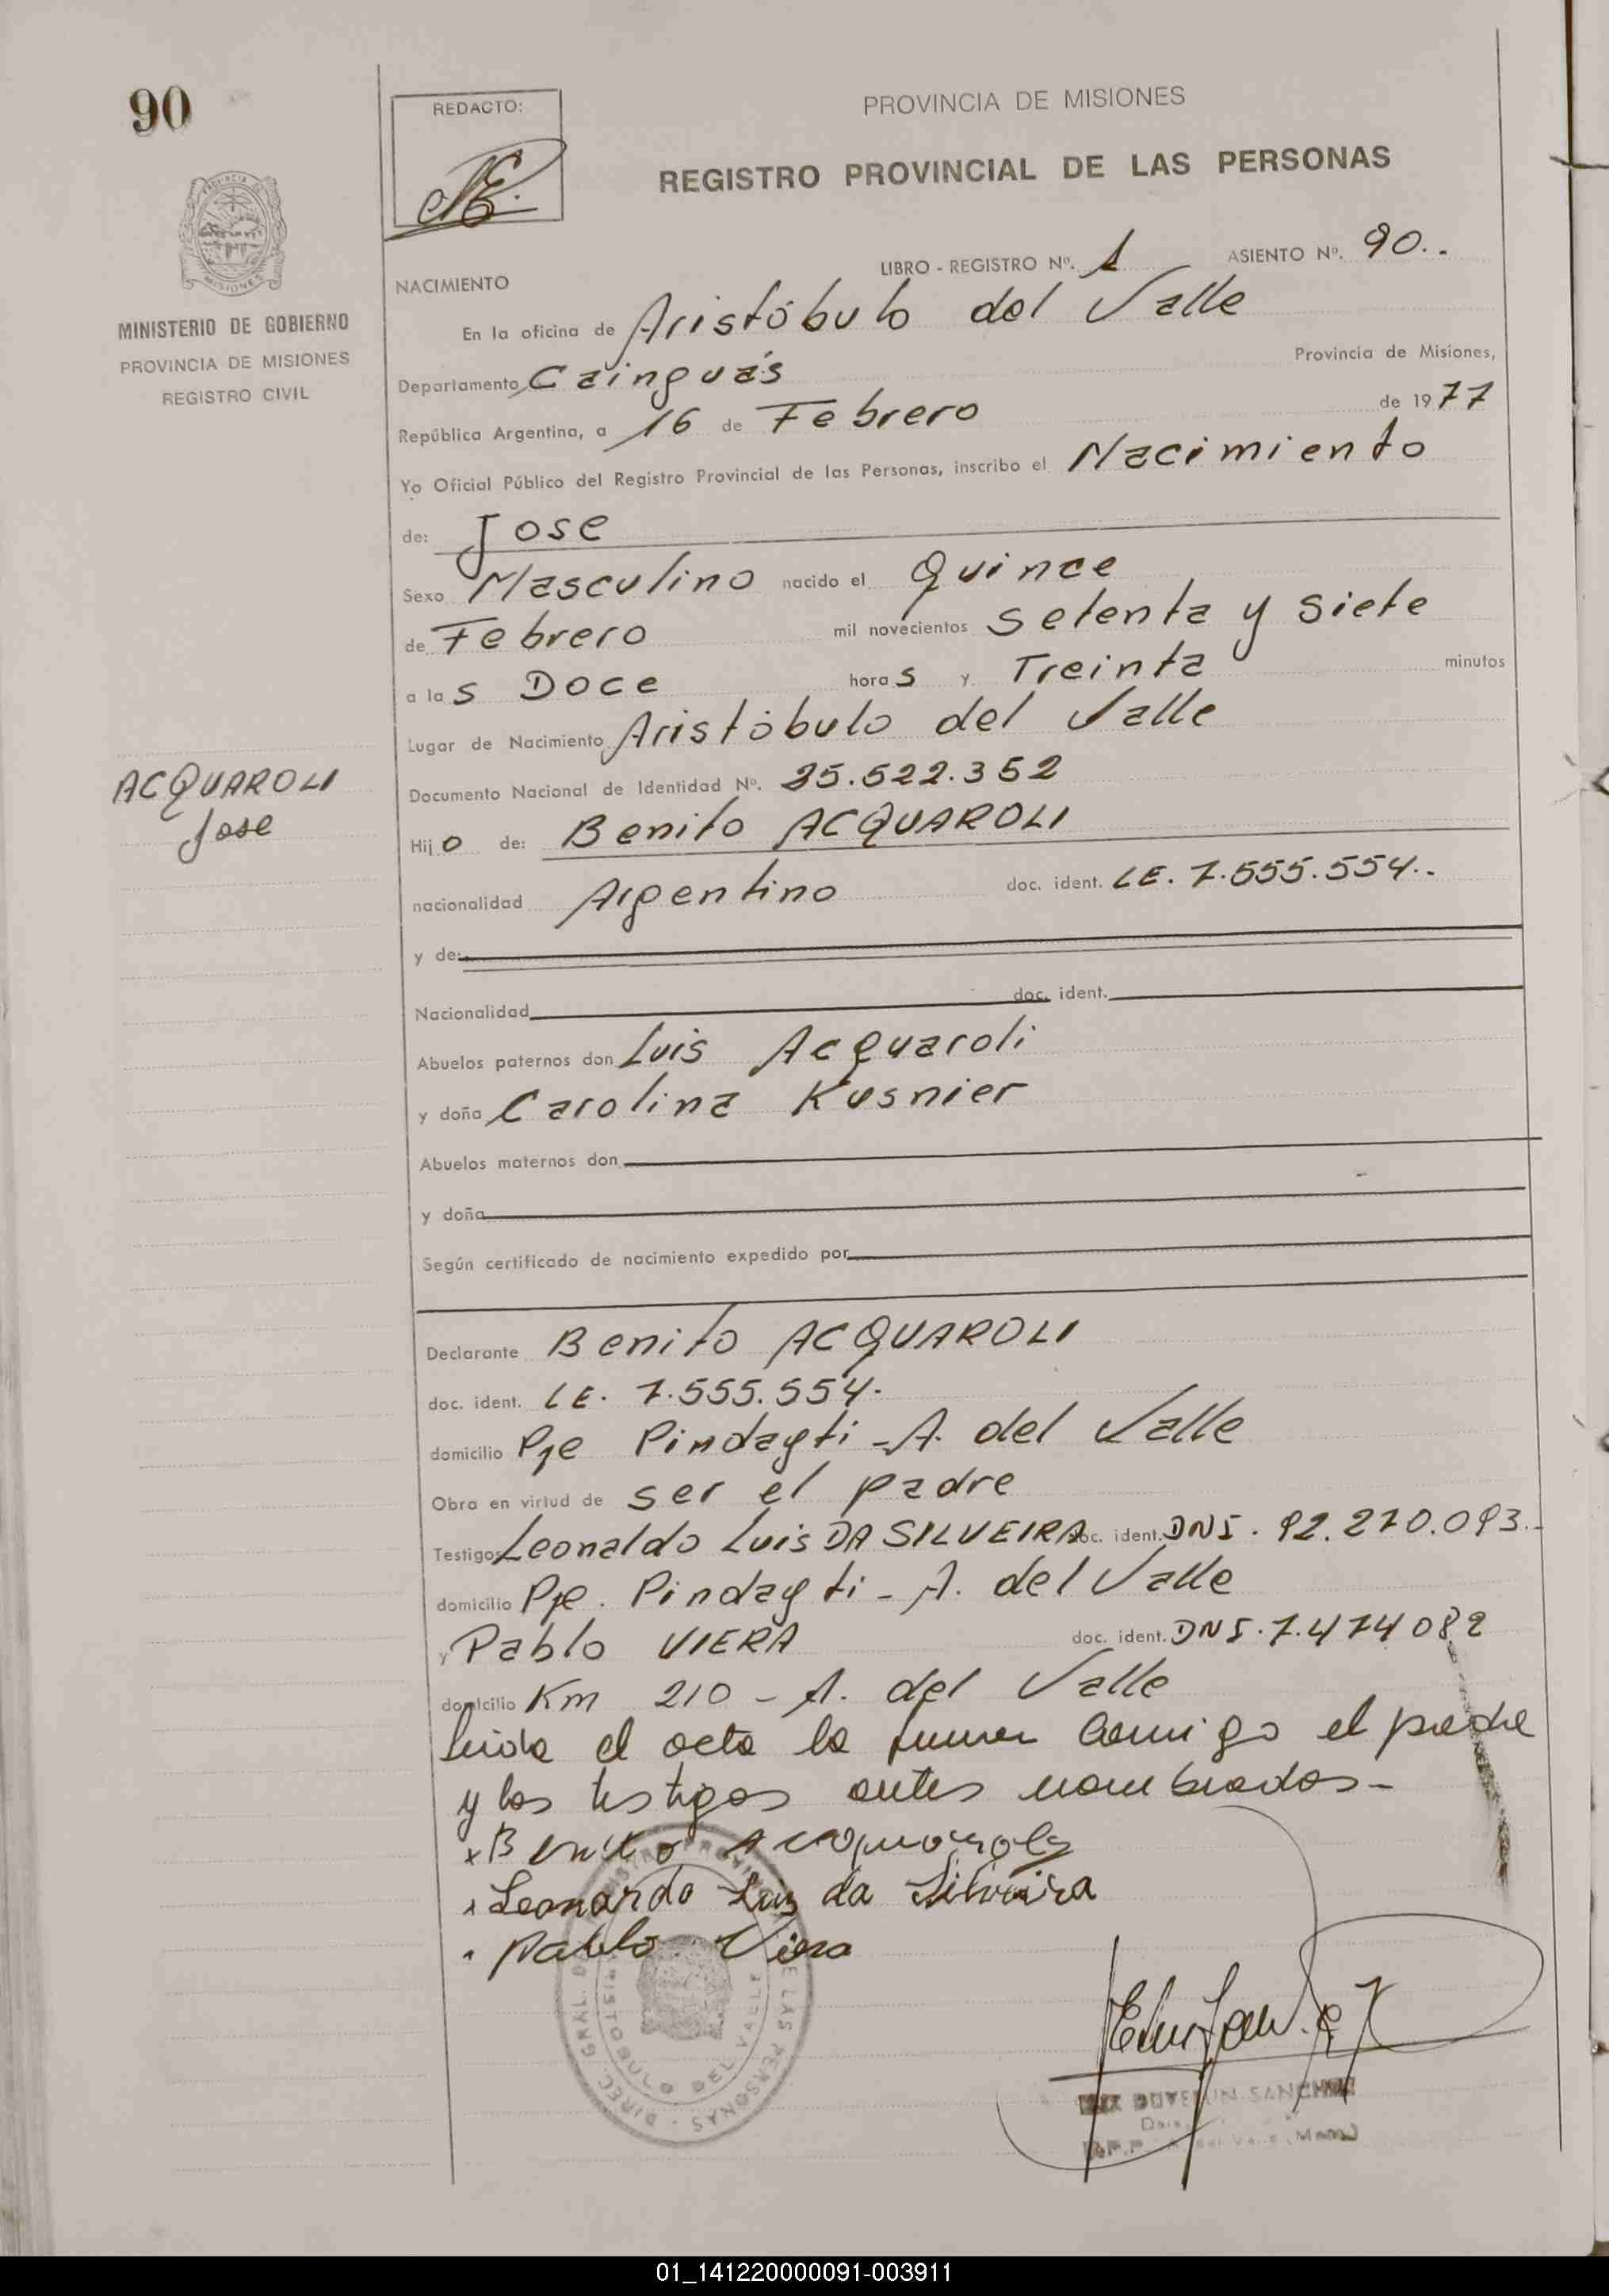 90
REDACTO:
PROVINCIA DE MISIONES
REGISTRO PROVINCIAL DE LAS PERSONAS
LIBRO - REGISTRO Nº. 1 ASIENTO Nº. 90..
NACIMIENTO
MINISTERIO DE GOBIERNO
PROVINCIA DE MISIONES
REGISTRO CIVIL
En la oficina de Aristóbulo del Valle
Departamento Cainguás Provincia de Misiones,
República Argentina, a 16 de Febrero de 1977
Yo Oficial Público del Registro Provincial de las Personas, inscribo el Nacimiento
de: Jose
Sexo Masculino nacido el Quince
de Febrero mil novecientos setenta y siete
a las Doce horas y Treinta minutos
Lugar de Nacimiento Aristóbulo del Valle
ACQUAROLI
Jose
Documento Nacional de Identidad Nº. 25.522.352
Hijo de: Benito ACQUAROLI
nacionalidad Argentino doc. ident. LE. 7.555.554..
y de:
Nacionalidad doc. ident.
Abuelos paternos don Luis Acquaroli
y doña Carolina Kusnier
Abuelos maternos don
y doña
Según certificado de nacimiento expedido por
Declarante Benito ACQUAROLI
doc. ident. LE. 7.555.554.
domicilio Pje Pindayti - A. del Valle
Obra en virtud de ser el padre
Testigos Leonaldo Luis DA SILVEIRA doc. ident. DNI. 92.270.093..
domicilio Pje. Pindayti - A. del Valle
y Pablo VIERA doc. ident. DNI. 7.474082
domicilio Km 210 - A. del Valle
leida el acta la firman conmigo el padre
y los testigos antes nombrados -
x Benito Acquaroly
Leonardo Luiz da Silveira
Pablo Viera
DIREC. GRAL. DEL REGISTRO PROVINCIAL DE LAS PERSONAS
ARISTOBULO DEL VALLE
SANCHEZ
01_141220000091-003911